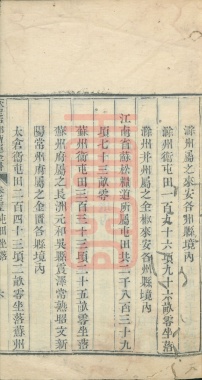 滁州屬之來安各州縣境內
滁州衛屯田一百九十六頃九十六畝零坐落
滁州并州屬之全椒來安各州縣境內
江南省蘇松糧道府屬屯田共二千八百三十九
頃七十三畝零
蘇州衛屯田三百三十三頃二十五畝零坐落
蘇州府屬之長洲元和吳縣震澤常熟昭文新
陽常州府屬之金匱各縣境內
太倉衛屯田二百四十三頃二畝零坐落蘇州